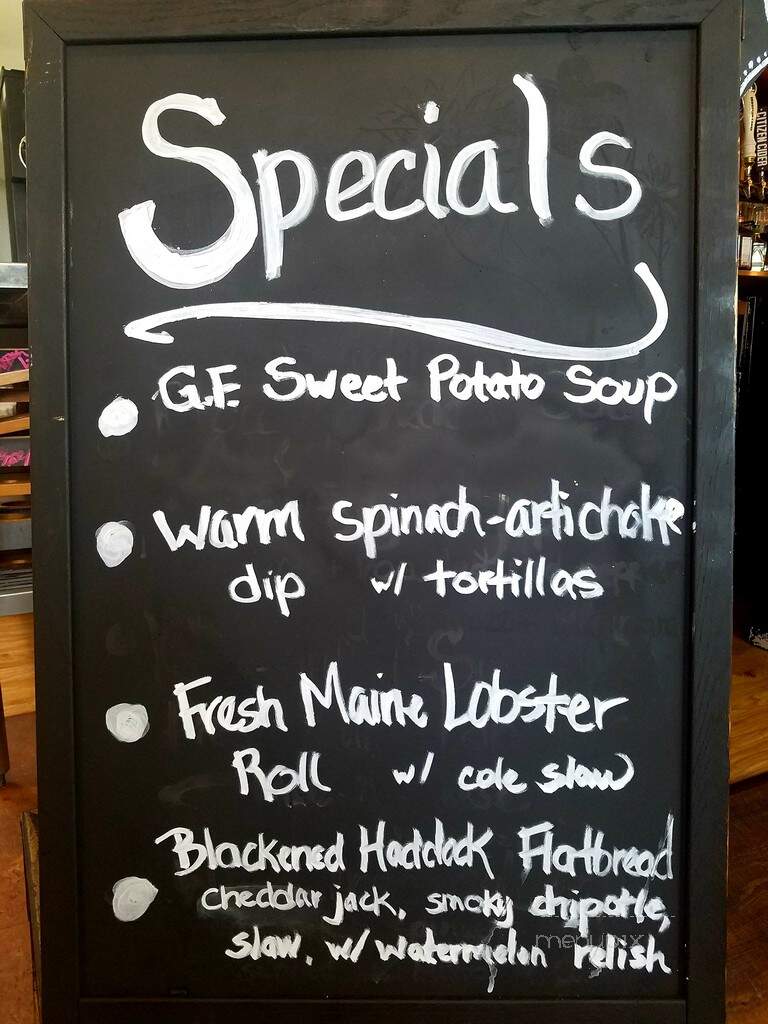 Specials
G.F. Sweet Potato Soup
Warm spinach-artichoke
dip w/ tortillas
Fresh Maine Lobster
Roll w/ cole slaw
Blackened Haddock Flatbread
cheddar jack, smoky chipotle,
slaw, w/ watermelon relish
menupix
CITIZEN CIDER